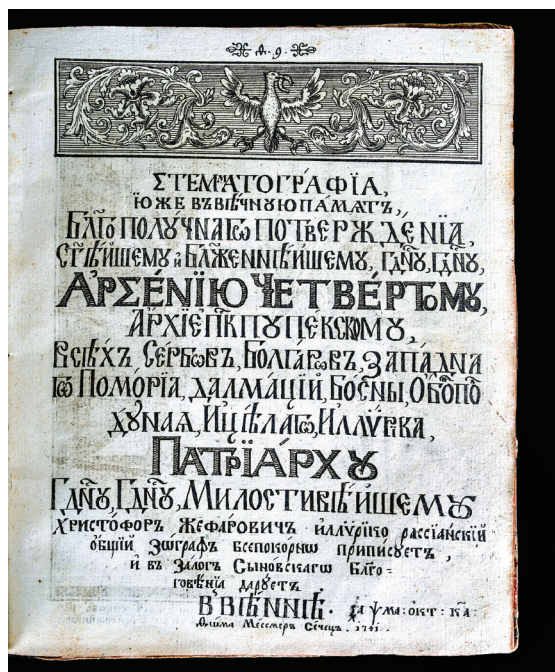 СТЕМАТОГРАФІА,
ЮЖЕ ВЪ ВѢЧНУЮ ПАМѦТЬ,
БЛГО ПОЛУ́ЧНАГѠ ПОТВЕРЖДЕ́НІѦ,
СТѢЙШЕМꙋ и БЛЖЕННѢЙШЕМꙋ, ГДИ́Нꙋ, ГДИ́Нꙋ,
АРСЕ́НІЮ ЧЕТВЕ́РТОМꙋ,
АРХІЕПⷭКПꙋ ПЕКСКОМꙋ,
ВСѢХЪ СЕ́РБѠВЪ, БОЛГА́РѠВЪ, ЗАПАДНА
ГѠ ПОМО́РІѦ, ДАЛМА́ЦІЙ, БО́СНЫ, ОБОПО́
ДꙋНАѦ, И ЦѢЛАГѠ, ИЛЛѴ́РІКА,
ПАТРІА́РХꙋ
ГДИ́Нꙋ, ГДИ́Нꙋ, МИЛОСТИВѢЙШЕМꙋ
Христофоръ Жефаровичъ иллѵ́рїко рассїа́нскїй
о́бщїй Зѡ́графъ всепоко́рнѡ приписꙋетъ,
и въ Зало́гъ Сыно́вскагѡ Блго=
говѣ́нїѧ дарꙋ́етъ
В ВІЕ́ННѢ. окт: ка:
Ѳѡма Мессмеръ Сѣчецъ. 1741.